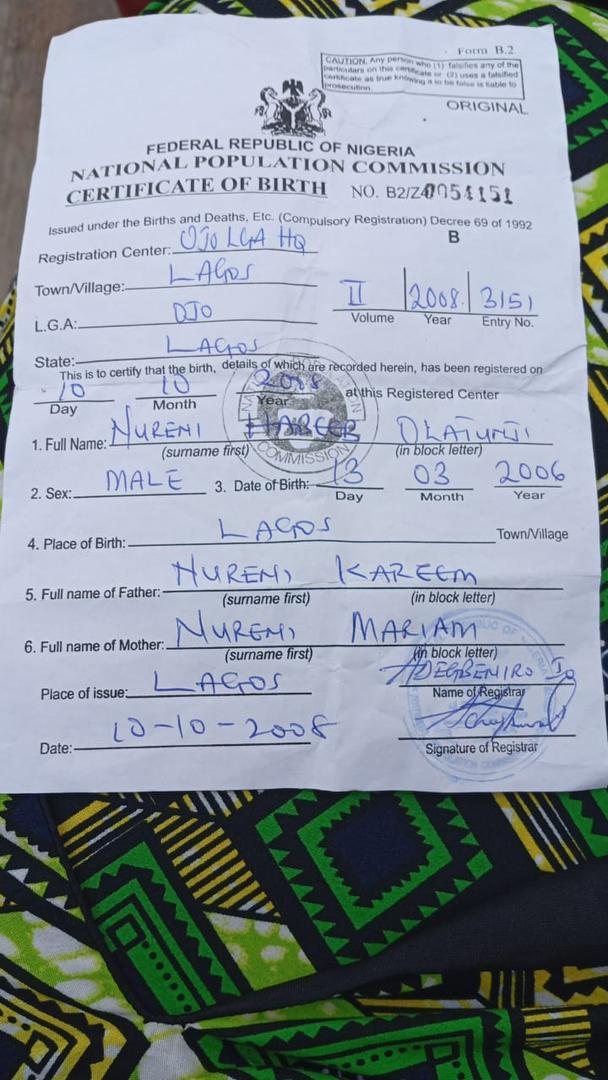 Form B.2
CAUTION, Any person who (1) falsifies any of the
particulars on this certificate or (2) uses a falsified
certificate as true knowing it to be false is liable to
prosecution.
ORIGINAL
FEDERAL REPUBLIC OF NIGERIA
NATIONAL POPULATION COMMISSION
CERTIFICATE OF BIRTH NO. B2/Z0054151
Issued under the Births and Deaths, Etc. (Compulsory Registration) Decree 69 of 1992
B
Registration Center: OJO LGA HQ
Town/Village: LAGOS
L.G.A: OJO
II 2008 3151
Volume Year Entry No.
State: LAGOS
This is to certify that the birth, details of which are recorded herein, has been registered on
10 10 2008 at this Registered Center
Day Month Year
1. Full Name: NURENI HABEEB OLATUNJI
(surname first) (in block letter)
2. Sex: MALE 3. Date of Birth: 13 03 2006
Day Month Year
4. Place of Birth: LAGOS Town/Village
5. Full name of Father: NURENI KAREEM
(surname first) (in block letter)
6. Full name of Mother: NURENI MARIAM
(surname first) (in block letter)
ADEGBENIRO
Place of issue: LAGOS Name of Registrar
Date: 10-10-2008
Signature of Registrar
COMMISSION